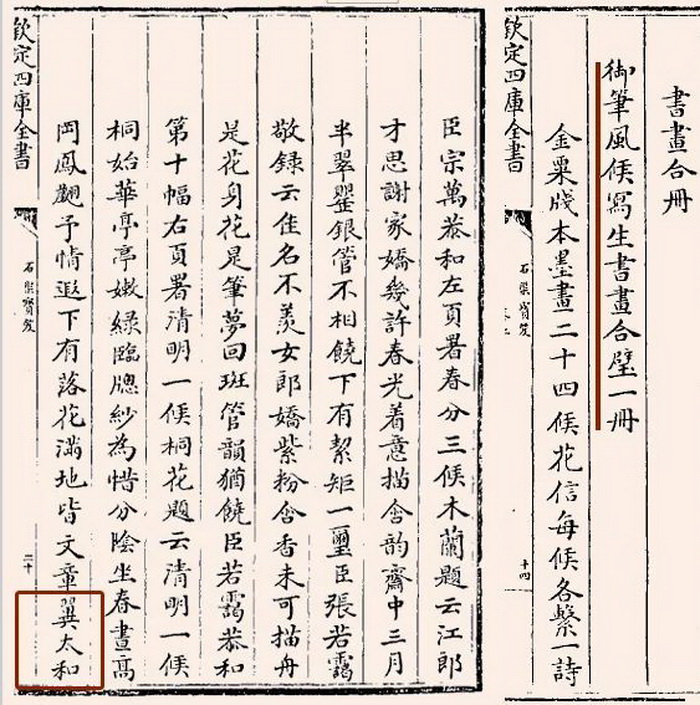 書畫合冊
御筆風候寫生書畫合璧一冊
金粟牋本墨畫二十四候花信每候各繫一詩
欽定四庫全書
石渠寶笈
十四
臣宗萬恭和左頁署春分三候木蘭題云江郎
才思謝家嬌幾許春光着意描含韵齋中三月
半翠銀管不相饒下有絜矩一璽臣張若靄
敬録云佳名不羨女郎嬌紫粉含香未可描舟
是花身花是筆夢回斑管韻猶饒臣若靄恭和
第十幅右頁署清明一候桐花題云清明一候
桐始華亭亭嫩綠臨牕紗為惜分陰坐春晝髙
岡鳳翽予情遐下有落花滿地皆文章翼太和
欽定四庫全書
石渠寶笈
二十